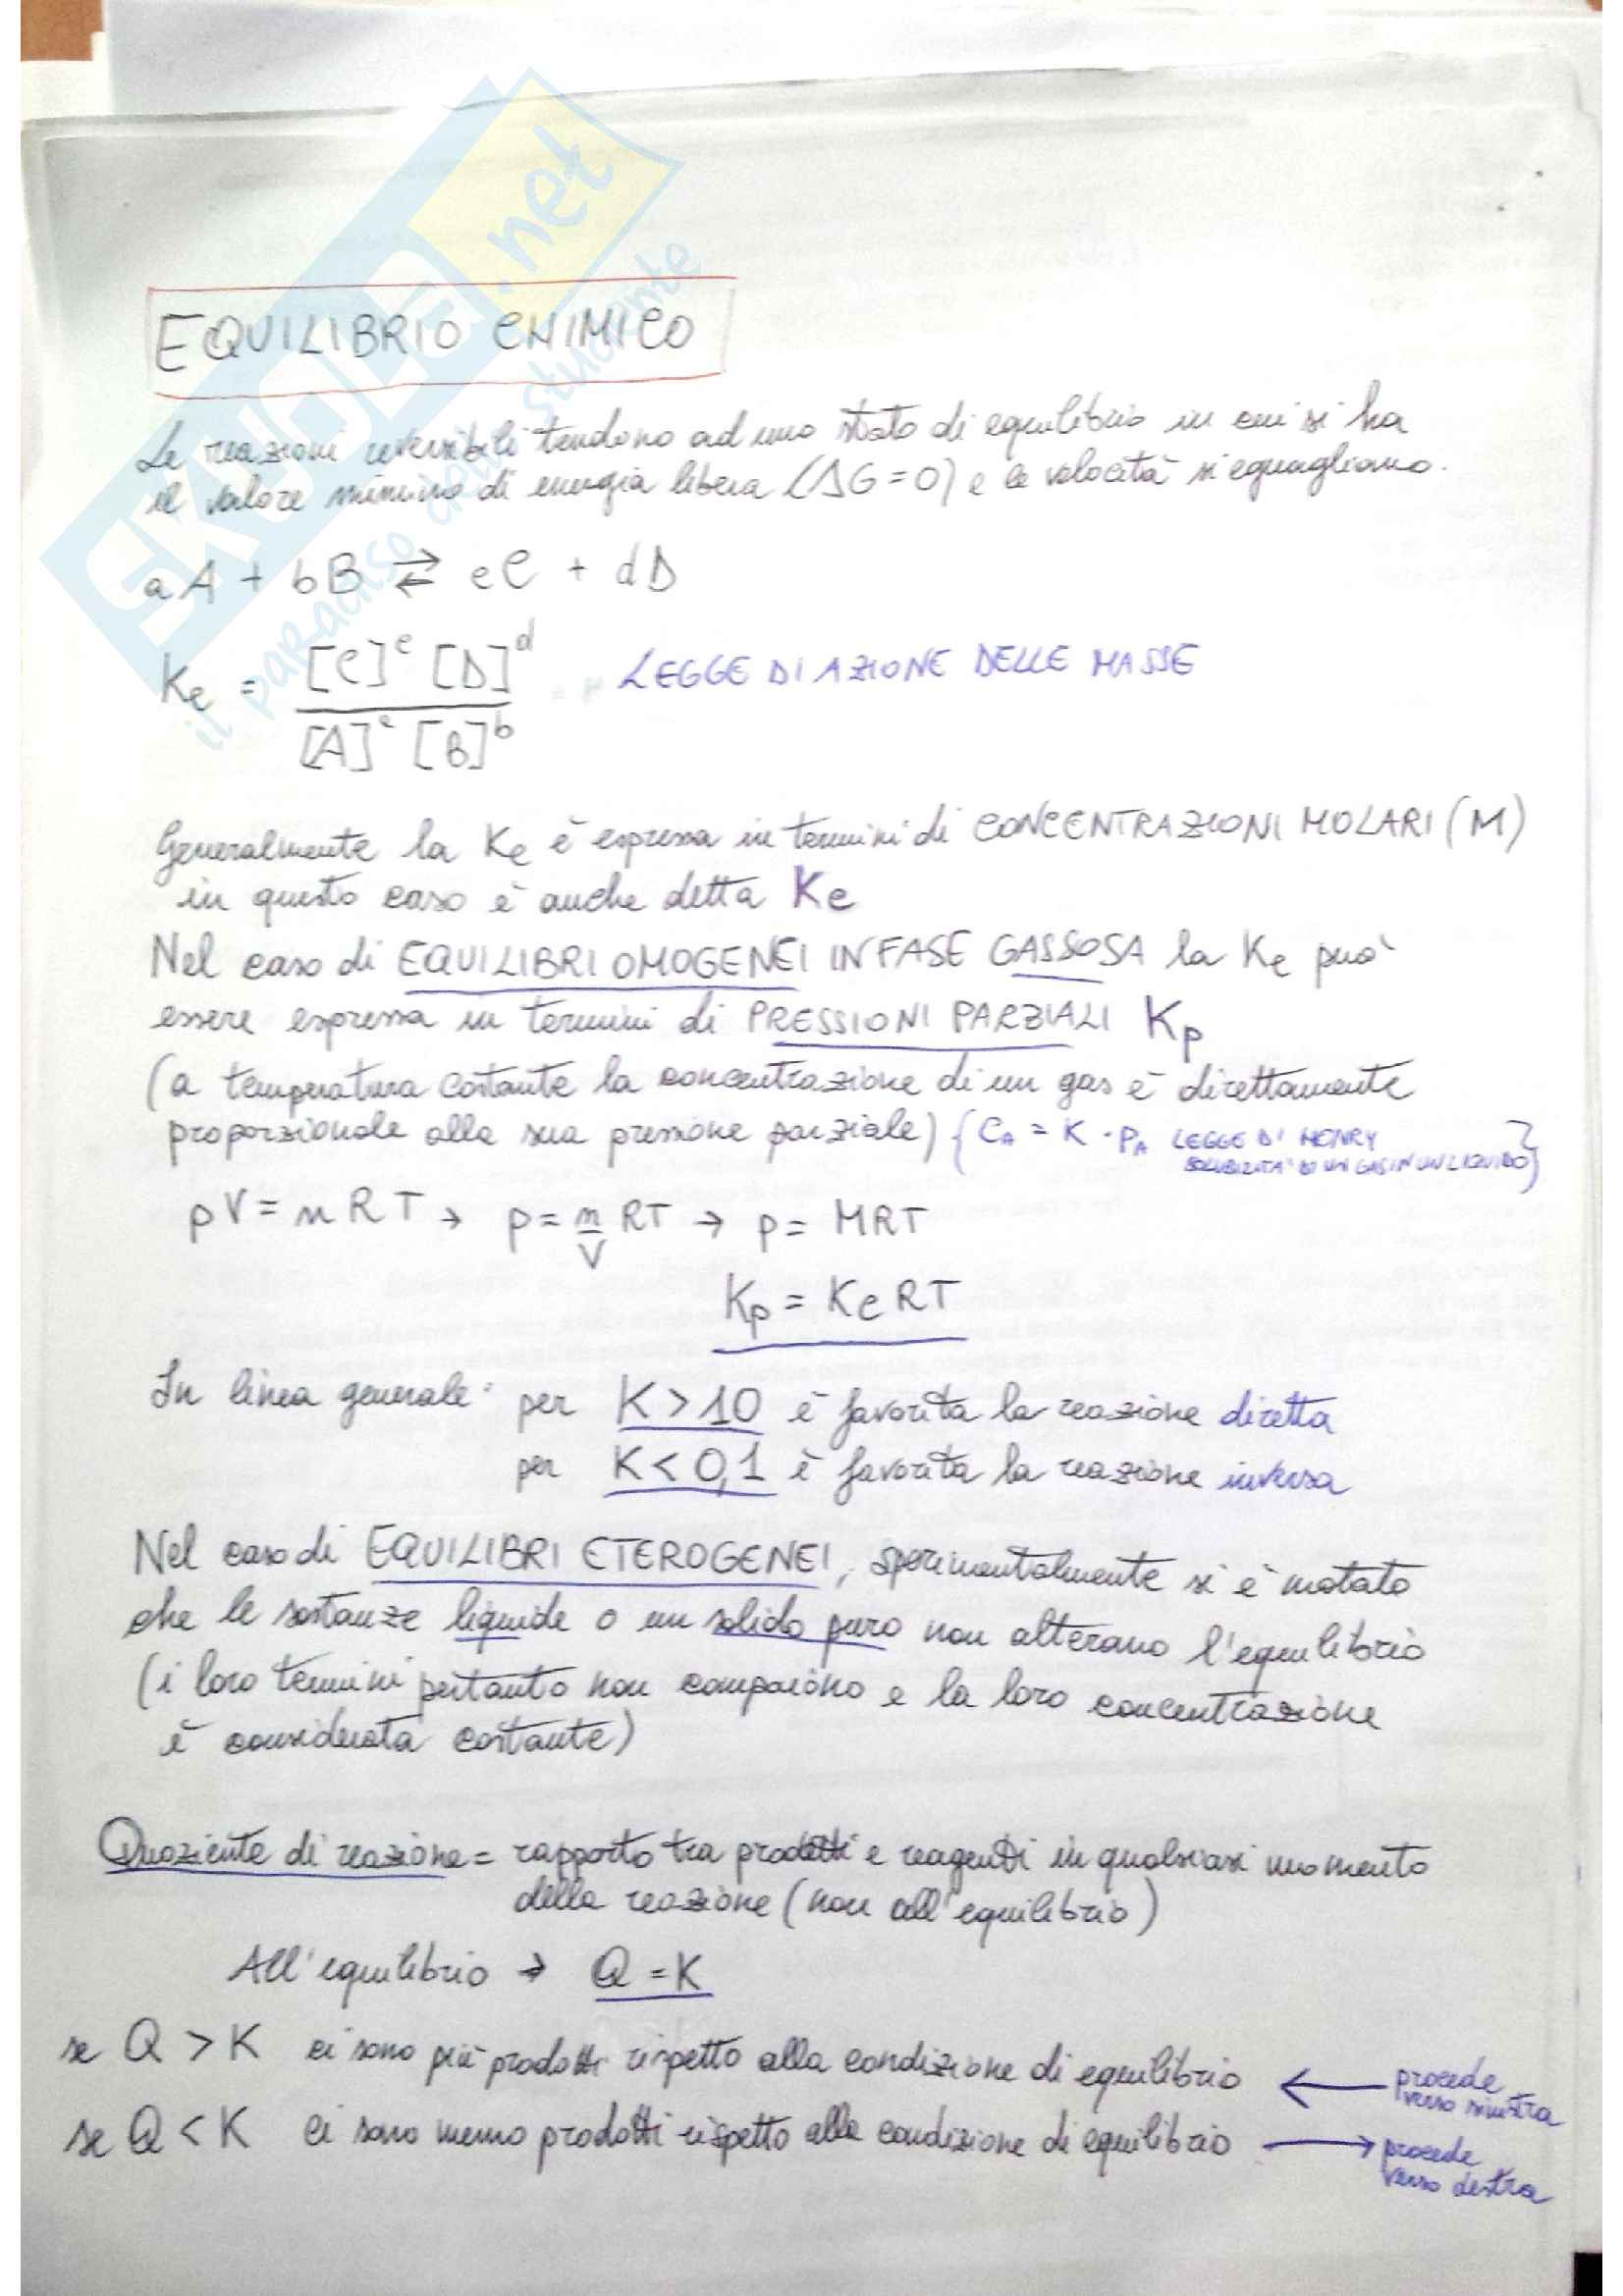 SKUOLA.net
il paradiso dello studente
EQUILIBRIO CHIMICO
Le reazioni reversibili tendono ad uno stato di equilibrio in cui si ha
il valore minimo di energia libera (ΔG = 0) e le velocità si eguagliano.
aA + bB ⇄ cC + dD
Ke = [C]^c [D]^d / [A]^a [B]^b = LEGGE DI AZIONE DELLE MASSE
Generalmente la Ke è espressa in termini di CONCENTRAZIONI MOLARI (M)
in questo caso è anche detta Kc
Nel caso di EQUILIBRI OMOGENEI IN FASE GASSOSA la Ke può
essere espressa in termini di PRESSIONI PARZIALI Kp
(a temperatura costante la concentrazione di un gas è direttamente
proporzionale alla sua pressione parziale) {CA = K · PA LEGGE DI HENRY
SOLUBILITA' DI UN GAS IN UN LIQUIDO}
pV = nRT → p = n/V RT → p = MRT
Kp = Kc RT
In linea generale: per K > 10 è favorita la reazione diretta
per K < 0,1 è favorita la reazione inversa
Nel caso di EQUILIBRI ETEROGENEI, sperimentalmente si è notato
che le sostanze liquide o un solido puro non alterano l'equilibrio
(i loro termini pertanto non compaiono e la loro concentrazione
è considerata costante)
Quoziente di reazione = rapporto tra prodotti e reagenti in qualsiasi momento
della reazione (non all'equilibrio)
All'equilibrio → Q = K
se Q > K ci sono più prodotti rispetto alla condizione di equilibrio ← procede
verso sinistra
se Q < K ci sono meno prodotti rispetto alla condizione di equilibrio → procede
verso destra